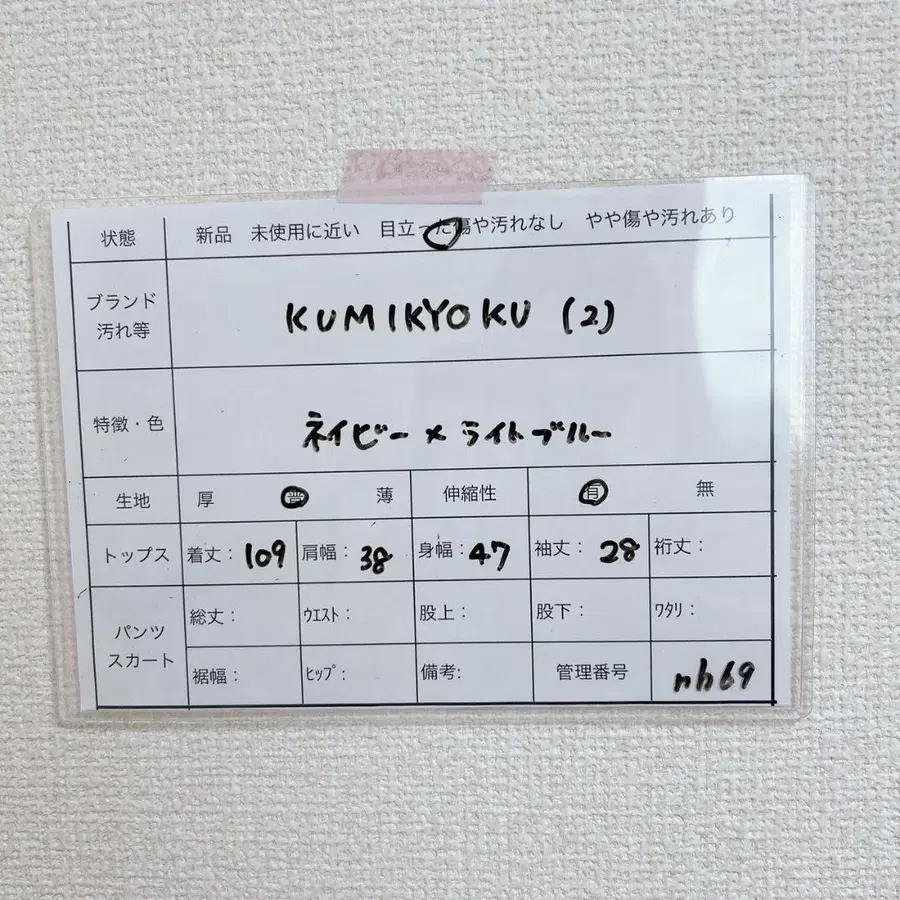 状態 新品 未使用に近い 目立った傷や汚れなし やや傷や汚れあり
ブランド
汚れ等
KUMIKYOKU (2)
特徴・色 ネイビー×ライトブルー
生地 厚 普 薄 伸縮性 有 無
トップス 着丈: 109 肩幅: 38 身幅: 47 袖丈: 28 裄丈:
パンツ
スカート
総丈: ウエスト: 股上: 股下: ワタリ:
裾幅: ヒップ: 備考: 管理番号 nh69